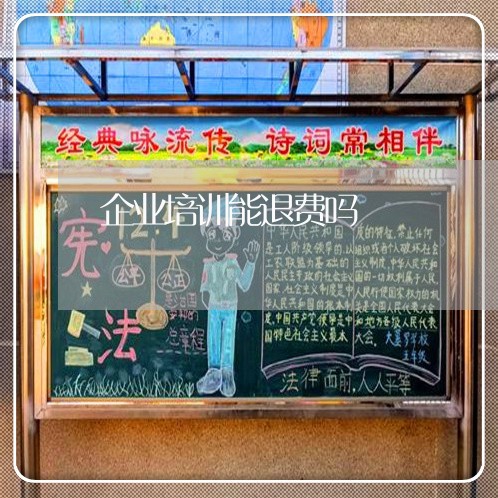 经典咏流传 诗词常相伴
企业培训能退费吗
12.4
宪
法
公平 公正
总章程
中华人民共和国
是工人阶级领导的,以
工农联盟为基础的
人民民主专政的社会主义
国家,社会主义制度是中
华人民共和国的根本制
度,中国共产党领导是中
国特色社会主义最本
质的特征,禁止任何
组织或者个人破坏社会
主义制度,中华人民共和
国的一切权利属于人民,
人民行使国家权力的机
关是全国人民代表大会
和地方各级人民代表
大会。
学校
五年级
法律面前,人人平等